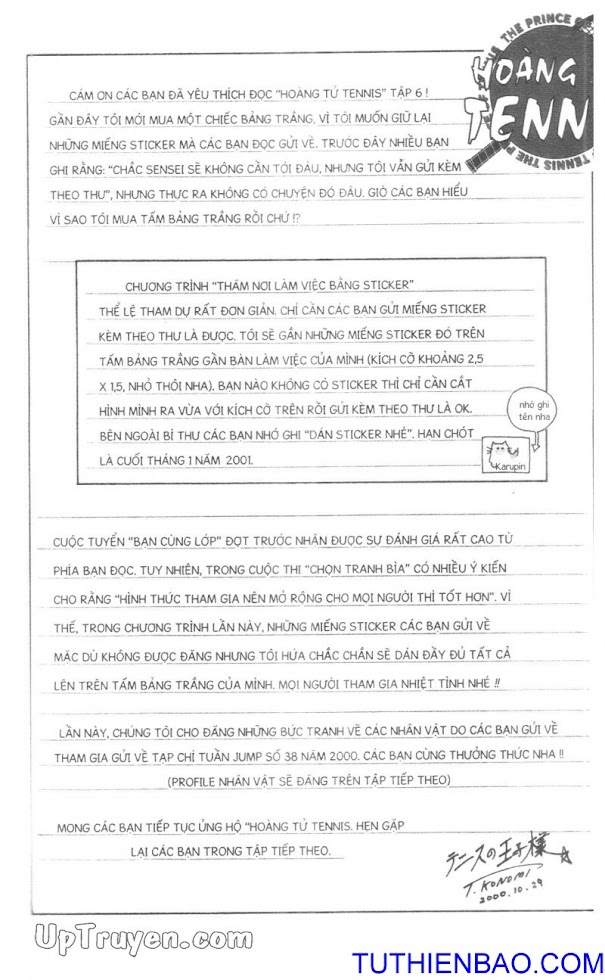 THE PRINCE OF
HOÀNG
TENN
TENNIS THE P
CÁM ƠN CÁC BẠN ĐÃ YÊU THÍCH ĐỌC "HOÀNG TỬ TENNIS" TẬP 6 !
GẦN ĐÂY TÔI MỚI MUA MỘT CHIẾC BẢNG TRẮNG, VÌ TÔI MUỐN GIỮ LẠI
NHỮNG MIẾNG STICKER MÀ CÁC BẠN ĐỌC GỬI VỀ. TRƯỚC ĐÂY NHIỀU BẠN
GHI RẰNG: "CHẮC SENSEI SẼ KHÔNG CẦN TỚI ĐÂU, NHƯNG TÔI VẪN GỬI KÈM
THEO THƯ", NHƯNG THỰC RA KHÔNG CÓ CHUYỆN ĐÓ ĐÂU. GIỜ CÁC BẠN HIỂU
VÌ SAO TÔI MUA TẤM BẢNG TRẮNG RỒI CHỨ !?
CHƯƠNG TRÌNH "THĂM NƠI LÀM VIỆC BẰNG STICKER"
THỂ LỆ THAM DỰ RẤT ĐƠN GIẢN. CHỈ CẦN CÁC BẠN GỬI MIẾNG STICKER
KÈM THEO THƯ LÀ ĐƯỢC. TÔI SẼ GẮN NHỮNG MIẾNG STICKER ĐÓ TRÊN
TẤM BẢNG TRẮNG GẦN BÀN LÀM VIỆC CỦA MÌNH (KÍCH CỠ KHOẢNG 2,5
X 1,5, NHỎ THÔI NHA). BẠN NÀO KHÔNG CÓ STICKER THÌ CHỈ CẦN CẮT
HÌNH MÌNH RA VỪA VỚI KÍCH CỠ TRÊN RỒI GỬI KÈM THEO THƯ LÀ OK.
BÊN NGOÀI BÌ THƯ CÁC BẠN NHỚ GHI "DÁN STICKER NHÉ". HẠN CHÓT
LÀ CUỐI THÁNG 1 NĂM 2001.
nhớ ghi
tên nha
Karupin
CUỘC TUYỂN "BẠN CÙNG LỚP" ĐỢT TRƯỚC NHẬN ĐƯỢC SỰ ĐÁNH GIÁ RẤT CAO TỪ
PHÍA BẠN ĐỌC. TUY NHIÊN, TRONG CUỘC THI "CHỌN TRANH BÌA" CÓ NHIỀU Ý KIẾN
CHO RẰNG "HÌNH THỨC THAM GIA NÊN MỞ RỘNG CHO MỌI NGƯỜI THÌ TỐT HƠN". VÌ
THẾ, TRONG CHƯƠNG TRÌNH LẦN NÀY, NHỮNG MIẾNG STICKER CÁC BẠN GỬI VỀ
MẶC DÙ KHÔNG ĐƯỢC ĐĂNG NHƯNG TÔI HỨA CHẮC CHẮN SẼ DÁN ĐẦY ĐỦ TẤT CẢ
LÊN TRÊN TẤM BẢNG TRẮNG CỦA MÌNH. MỌI NGƯỜI THAM GIA NHIỆT TÌNH NHÉ !!
LẦN NÀY, CHÚNG TÔI CHO ĐĂNG NHỮNG BỨC TRANH VỀ CÁC NHÂN VẬT DO CÁC BẠN GỬI VỀ
THAM GIA GỬI VỀ TẠP CHÍ TUẦN JUMP SỐ 38 NĂM 2000. CÁC BẠN CÙNG THƯỞNG THỨC NHA !!
(PROFILE NHÂN VẬT SẼ ĐĂNG TRÊN TẬP TIẾP THEO)
MONG CÁC BẠN TIẾP TỤC ỦNG HỘ "HOÀNG TỬ TENNIS. HẸN GẶP
LẠI CÁC BẠN TRONG TẬP TIẾP THEO.
テニスの王子様
T. KONOMI
2000.10.29
UpTruyen.com
TUTHIENBAO.COM